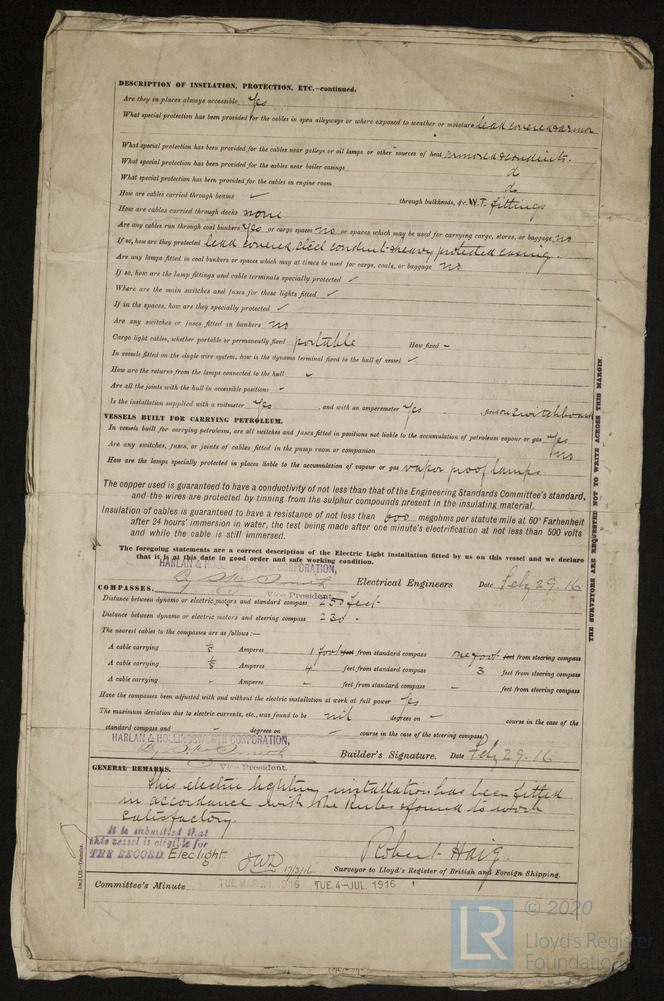 DESCRIPTION OF INSULATION, PROTECTION, ETC.—continued.
Are they in places always accessible Yes
What special protection has been provided for the cables in open alleyways or where exposed to weather or moisture lead covered & armor
What special protection has been provided for the cables near galleys or oil lamps or other sources of heat armored & conduits.
What special protection has been provided for the cables near boiler casings do
What special protection has been provided for the cables in engine room do
How are cables carried through beams ✓ through bulkheads, &c. W.T. fittings
How are cables carried through decks none
Are any cables run through coal bunkers Yes or cargo spaces no or spaces which may be used for carrying cargo, stores, or baggage no
If so, how are they protected lead covered, steel conduit & heavy protected casing.
Are any lamps fitted in coal bunkers or spaces which may at times be used for cargo, coals, or baggage no
If so, how are the lamp fittings and cable terminals specially protected ✓
Where are the main switches and fuses for these lights fitted ✓
If in the spaces, how are they specially protected ✓
Are any switches or fuses fitted in bunkers no
Cargo light cables, whether portable or permanently fixed portable How fixed –
In vessels fitted on the single wire system, how is the dynamo terminal fixed to the hull of vessel ✓
How are the returns from the lamps connected to the hull ✓
Are all the joints with the hull in accessible positions ✓
Is the installation supplied with a voltmeter Yes , and with an amperemeter Yes , fixed on switchboard
VESSELS BUILT FOR CARRYING PETROLEUM.
In vessels built for carrying petroleum, are all switches and fuses fitted in positions not liable to the accumulation of petroleum vapour or gas Yes
Are any switches, fuses, or joints of cables fitted in the pump room or companion no
How are the lamps specially protected in places liable to the accumulation of vapour or gas vapor proof lamps
The copper used is guaranteed to have a conductivity of not less than that of the Engineering Standards Committee's standard,
and the wires are protected by tinning from the sulphur compounds present in the insulating material.
Insulation of cables is guaranteed to have a resistance of not less than 600 megohms per statute mile at 60° Farhenheit
after 24 hours' immersion in water, the test being made after one minute's electrification at not less than 500 volts
and while the cable is still immersed.
The foregoing statements are a correct description of the Electric Light installation fitted by us on this vessel and we declare
that it is at this date in good order and safe working condition.
HARLAN & HOLLINGSWORTH CORPORATION,
Electrical Engineers Date Feby 29. 16
Vice President.
COMPASSES.
Distance between dynamo or electric motors and standard compass 250 feet
Distance between dynamo or electric motors and steering compass 230 "
The nearest cables to the compasses are as follows:—
A cable carrying 1/8 Amperes 1 foot feet from standard compass one foot feet from steering compass
A cable carrying 1/8 Amperes 4 feet from standard compass 3 feet from steering compass
A cable carrying " Amperes – feet from standard compass – feet from steering compass
Have the compasses been adjusted with and without the electric installation at work at full power Yes
The maximum deviation due to electric currents, etc., was found to be nil degrees on – course in the case of the
standard compass and – degrees on – course in the case of the steering compass.
HARLAN & HOLLINGSWORTH CORPORATION,
Builder's Signature. Date Feby 29. 16
Vice President.
GENERAL REMARKS.
This electric lighting installation has been fitted
in accordance with the Rules & found to work
satisfactory.
It is submitted that
this vessel is eligible for
THE RECORD. Elec light
17/3/16
Robert Haig.
Surveyor to Lloyd's Register of British and Foreign Shipping.
Committee's Minute TUE. MAR. 21. 1916 TUE. 4-JUL. 1916
THE SURVEYORS ARE REQUESTED NOT TO WRITE ACROSS THIS MARGIN.
LR
© 2020
Lloyd's Register
Foundation